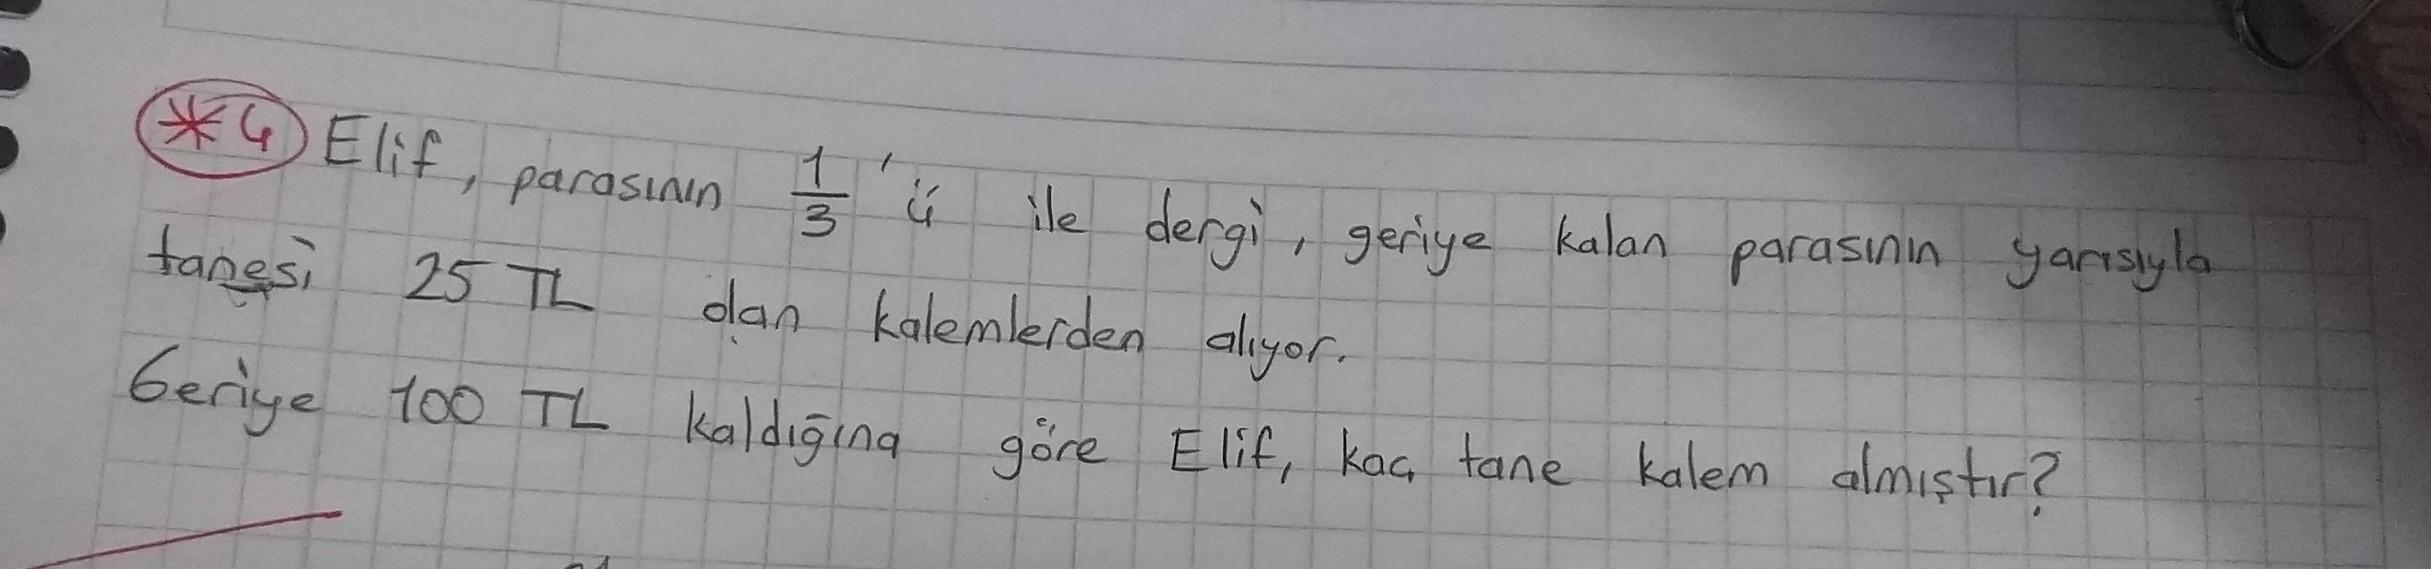 *4 Elif, parasının 1/3 'ü ile dergi, geriye kalan parasının yarısıyla
tanesi 25 TL olan kalemlerden alıyor.
Geriye 100 TL kaldığına göre Elif, kaç tane kalem almıştır?